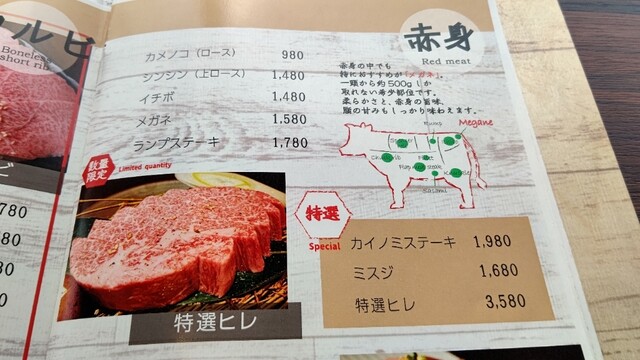 ルビ
Boneless
short rib
ビ
780
80
80
カメノコ（ロース） 980
シンシン（上ロース） 1,480
イチボ 1,480
メガネ 1,580
ランプステーキ 1,780
数量
限定
Limited quantity
特選ヒレ
赤身
Red meat
赤身の中でも
特におすすめが「メガネ」。
一頭から約500gしか
取れない希少部位です。
柔らかさと、赤身の旨味、
脂の甘みもしっかり味わえます。
Megane
特選
Special
カイノミステーキ 1,980
ミスジ 1,680
特選ヒレ 3,580